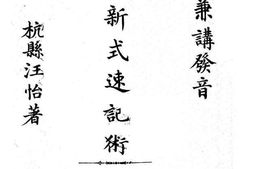 兼講發音
新式速記術
杭縣汪怡著